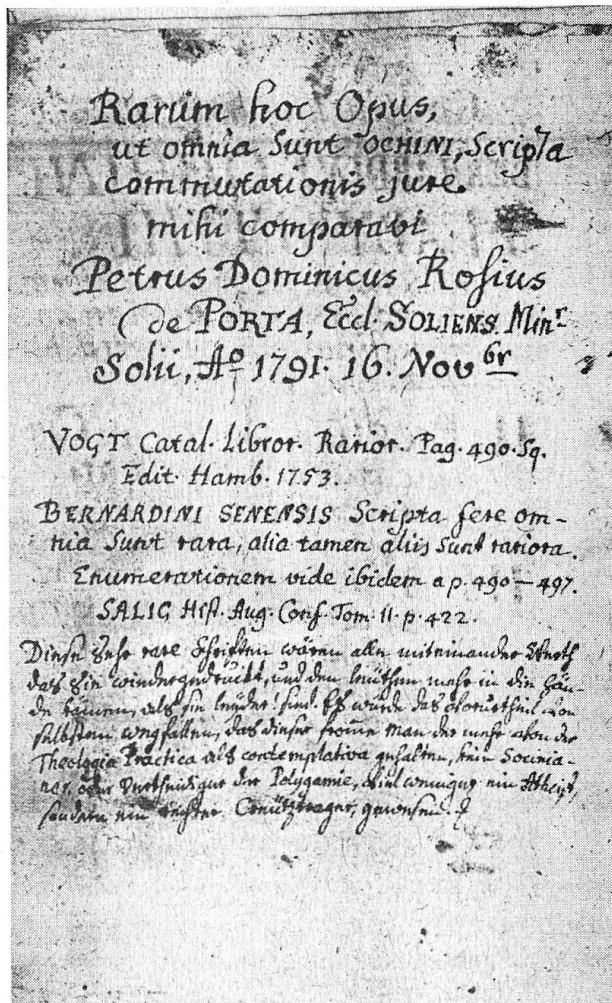 Rarum hoc Opus,
ut omnia sunt OCHINI, Scripta
commutationis jure.
mihi comparavi
Petrus Dominicus Rosius
de PORTA, Eccl. SOLIENS. Minr
Solii, Ao 1791. 16. Nov 6r
VOGT Catal. Libror. Rarior. Pag. 490. Sq.
Edit. Hamb. 1753.
BERNARDINI SENENSIS Scripta fere om-
nia sunt rara, alia tamen aliis sunt rariora.
Enumerationem vide ibidem a p. 490 — 497.
SALIG Hist. Aug. Conf. Tom. II. p. 422.
Diese sehr rare Schriften wären alle miteinander Werth
daß sie wiedergedruckt, und den leüthen mehr in die Hän-
de kämen, als sie leyder! sind. Es würde das Vorurtheil von
selbsten wegfallen, daß dieser fromme Man der mehr von der
Theologia Practica als contemplativa gehalten, kein Socinia-
ner, oder Vertheidiger der Polygamie, viel weniger ein Atheist,
sondern ein rechter Creützträger, gewesen.